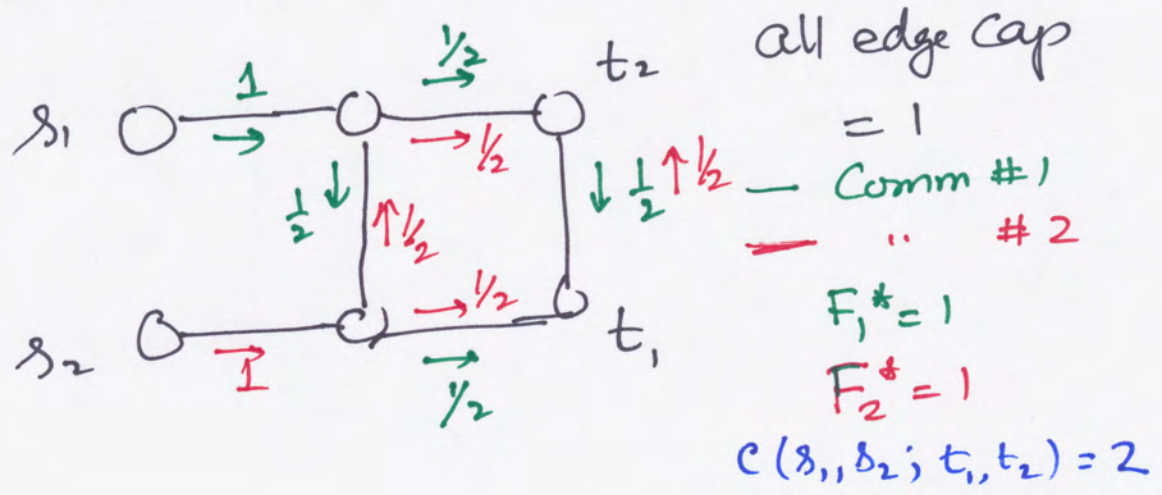 s₁
1
→
1/2
→
→ 1/2
t₂
1/2 ↓
↑ 1/2
↓ 1/2 ↑ 1/2
s₂
→
1
→ 1/2
→
1/2
t₁
all edge cap
= 1
— Comm #1
— " #2
F₁* = 1
F₂* = 1
C(s₁, s₂; t₁, t₂) = 2